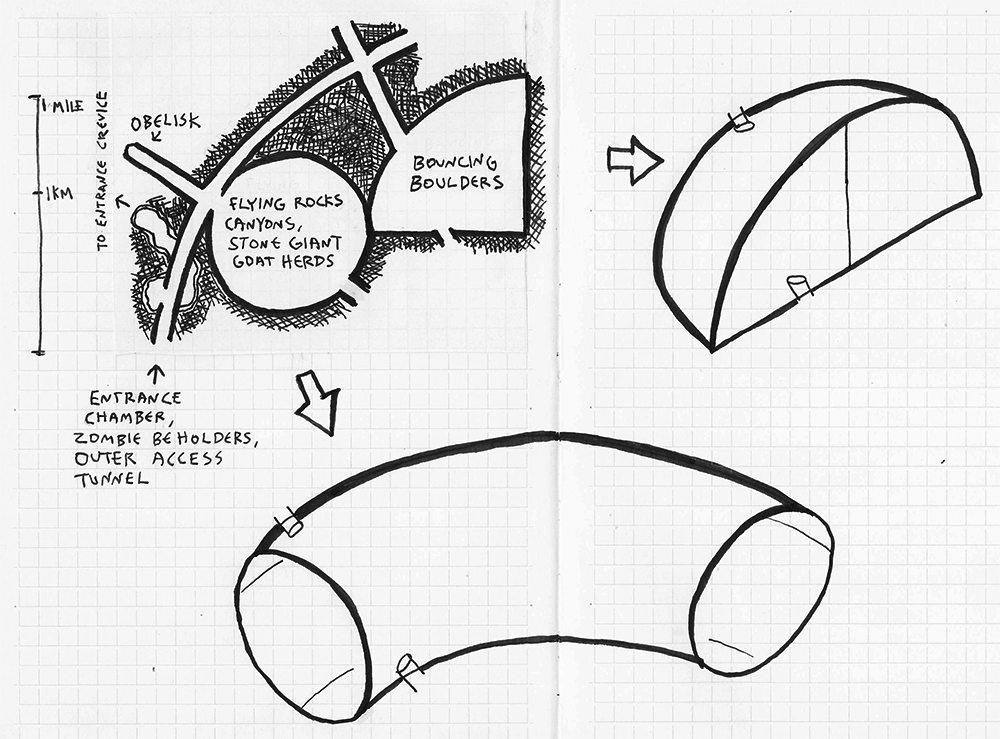 1 MILE
1KM
TO ENTRANCE CREVICE
OBELISK
FLYING ROCKS
CANYONS,
STONE GIANT
GOAT HERDS
BOUNCING
BOULDERS
ENTRANCE
CHAMBER,
ZOMBIE BEHOLDERS,
OUTER ACCESS
TUNNEL